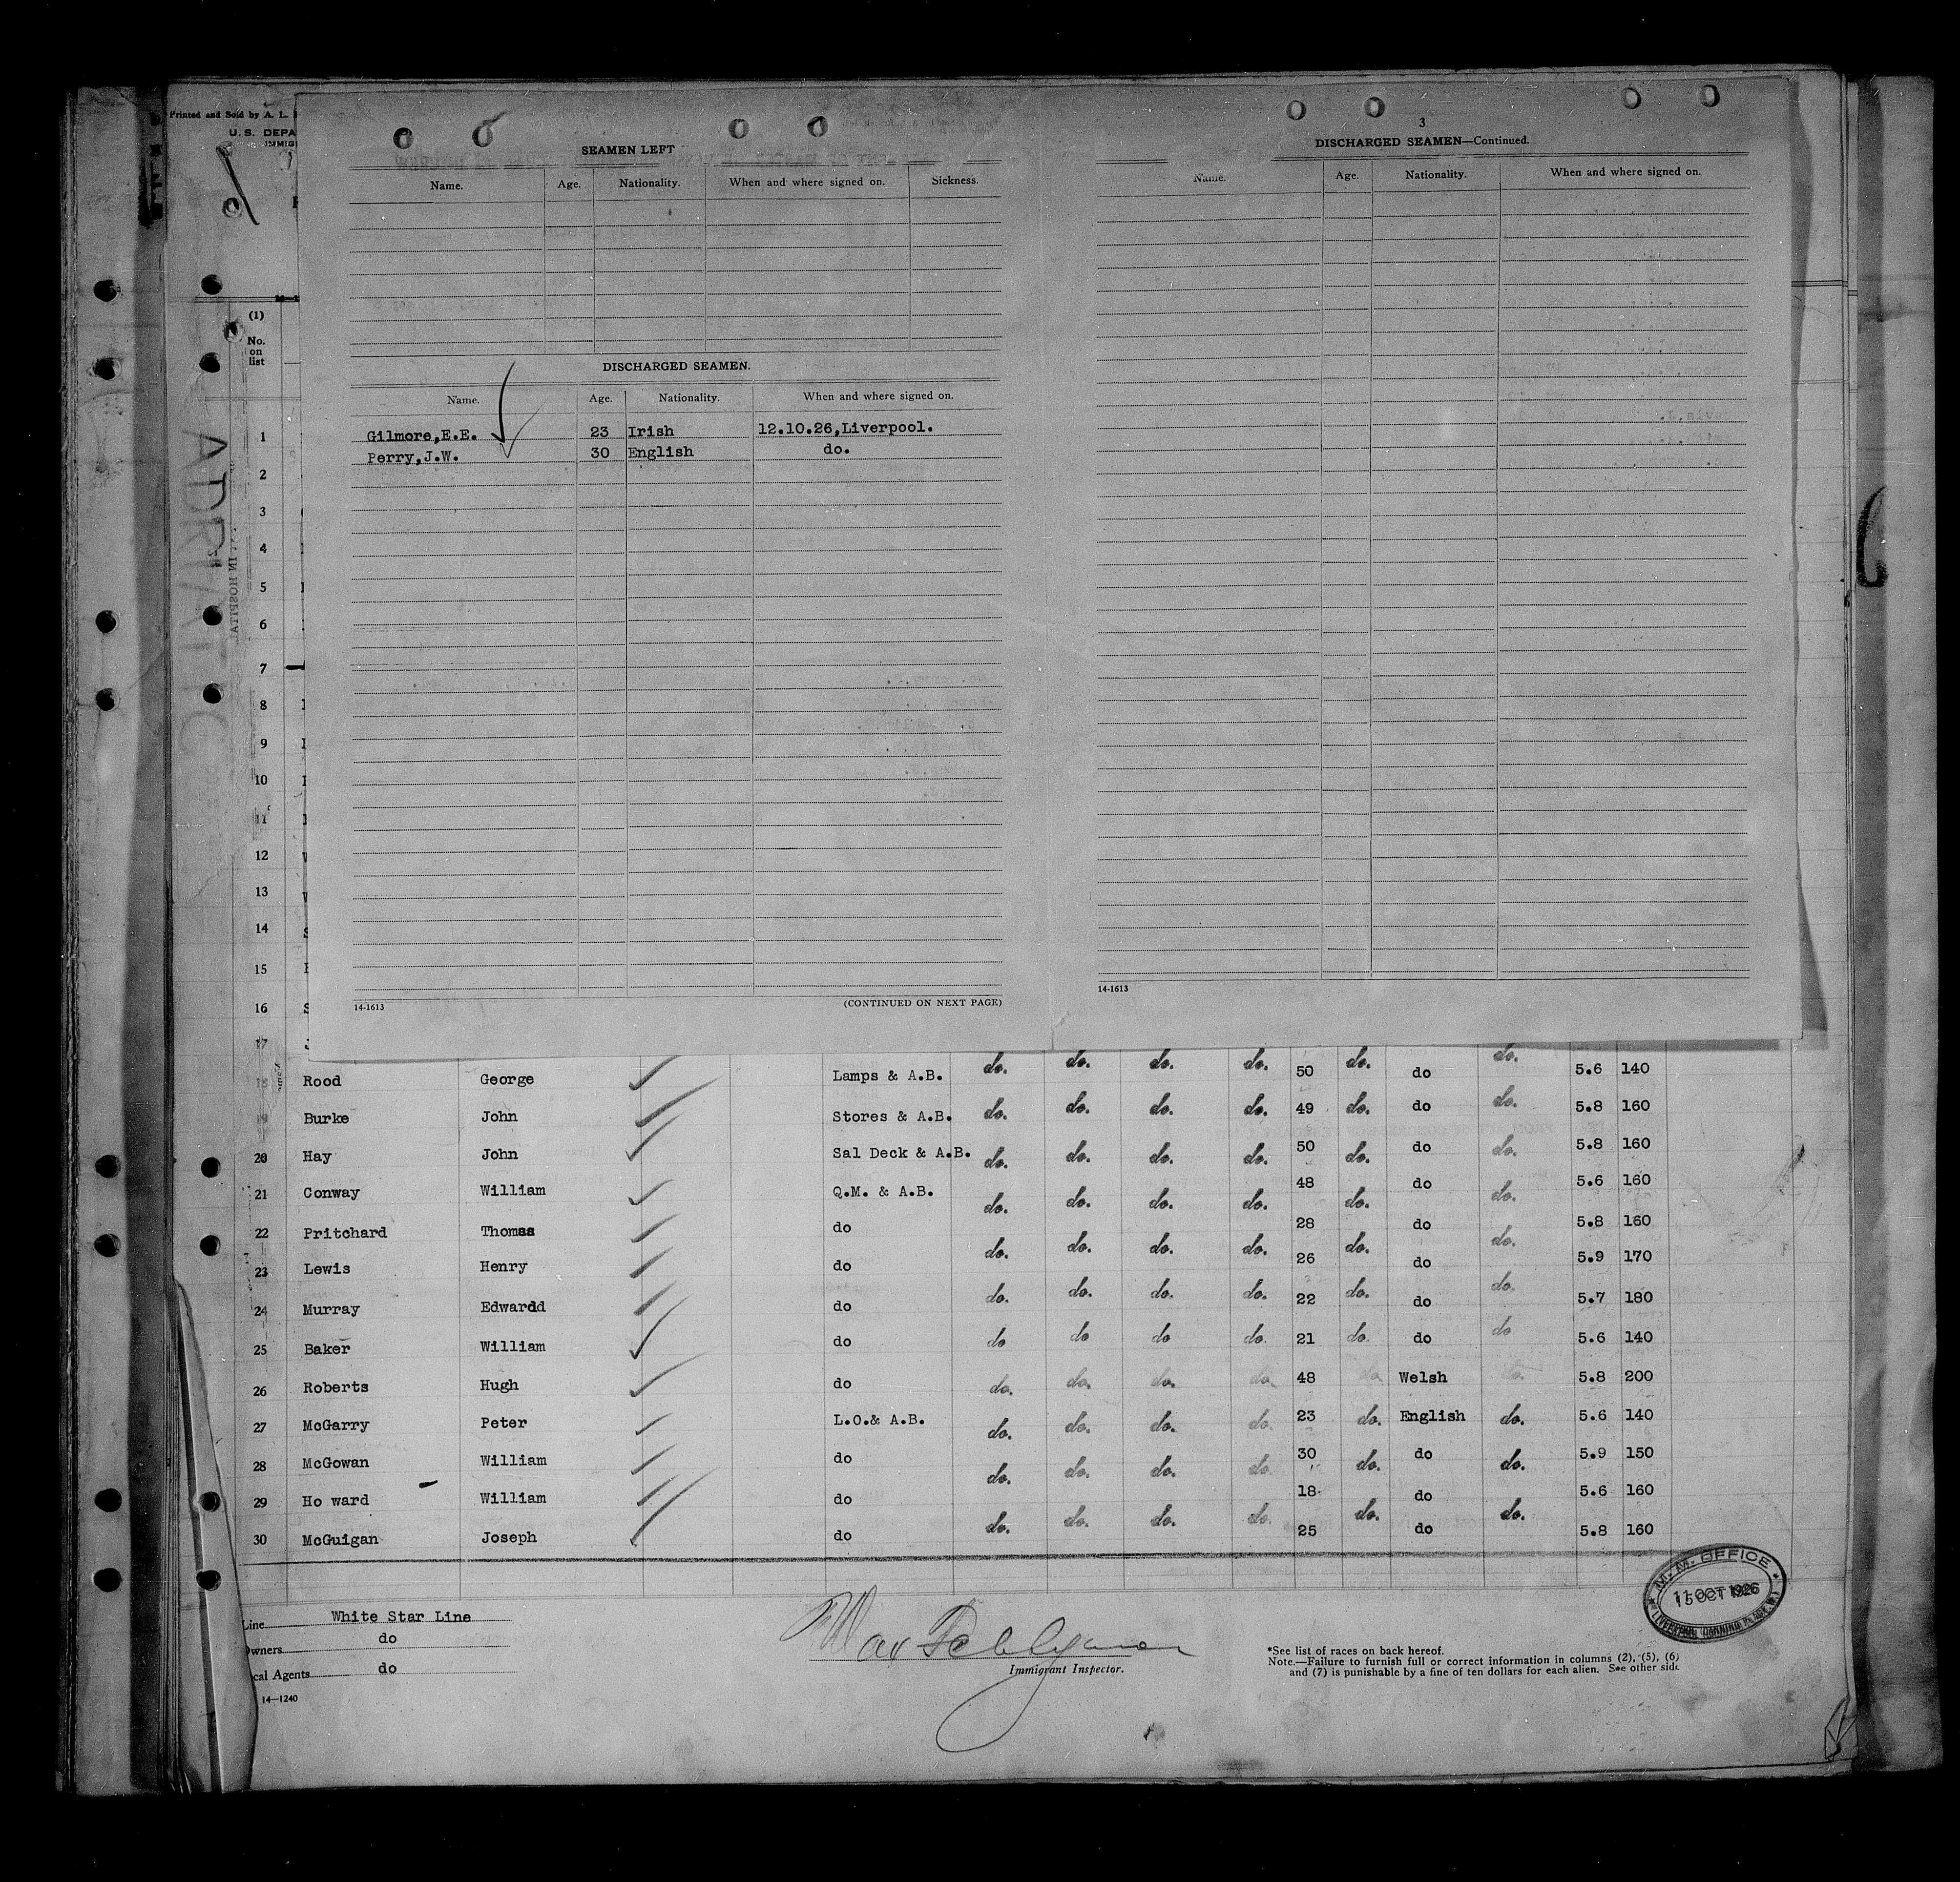 Printed and Sold by A. L.
U. S. DEPA
IMMIG
SEAMEN LEFT
Name. Age. Nationality. When and where signed on. Sickness.
DISCHARGED SEAMEN.
Name. Age. Nationality. When and where signed on.
Gilmore,E.E. 23 Irish 12.10.26,Liverpool.
Perry,J.W. 30 English do.
14-1613 (CONTINUED ON NEXT PAGE)
3
DISCHARGED SEAMEN—Continued.
Name. Age. Nationality. When and where signed on.
14-1613
(1)
No.
on
list
ADRIATIC
IN HOSPITAL
1
2
3
4
5
6
7
8
9
10
11
12
13
14
15
16
17 do. do. do. do. do. do.
18 Rood George Lamps & A.B. 50 do 5.6 140
19 Burke John Stores & A.B. do. do. do. do. 49 do. do do. 5.8 160
20 Hay John Sal Deck & A.B. do. do. do. do. 50 do. do do. 5.8 160
21 Conway William Q.M. & A.B. do. do. do. do. 48 do. do do. 5.6 160
22 Pritchard Thomas do do. do. do. do. 28 do. do do. 5.8 160
23 Lewis Henry do 26 do 5.9 170
24 Murray Edwardd do do. do. do. do. 22 do. do do. 5.7 180
25 Baker William do do do do do. 21 do. do do 5.6 140
26 Roberts Hugh do do. do. do. do. 48 do. Welsh do. 5.8 200
27 McGarry Peter L.O.& A.B. do. do. do. do. 23 do. English do. 5.6 140
28 McGowan William do do. do. do. do. 30 do. do do. 5.9 150
29 Ho ward William do 18 do 5.6 160
30 McGuigan Joseph do do. do. do. do. 25 do. do do. 5.8 160
Line White Star Line
Owners do
cal Agents do
14—1240
Immigrant Inspector.
M. M. OFFICE
OCT 1926
LIVERPOOL CANNING PLACE
*See list of races on back hereof.
Note.—Failure to furnish full or correct information in columns (2), (5), (6)
and (7) is punishable by a fine of ten dollars for each alien. See other side